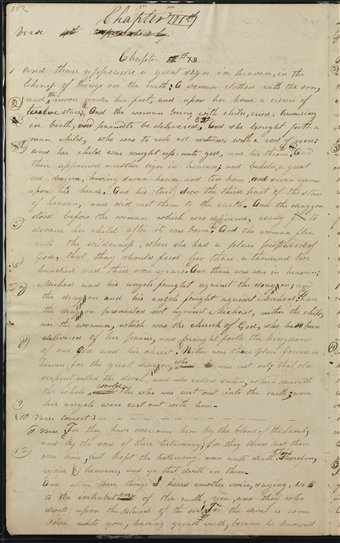 152 Chapter
Verse
Chapter XII
1 And there appeared a great sign in heaven, in the
likeng of things on the earth; a woman clothed with the son,
and the moon under her feet, and upon her head a crown of
twelve stars. And the woman being with child, cried, travailing
in birth, and pained to be delivered. And she brought forth a
man child, who was to rule all nations with a rod of iron:
and her child was caught up unto god, and his throne. And
there appeared another sign in heaven; and behold, a great
red dragon, having seven heads and ten horns, and seven crowns
upon his heads. And his tail drew the third part of the stars
of heaven, and did cast them to the earth. And the dragon
stood before the woman which was delivered, ready to
devour her child after it was born. And the woman fled
into the wilderness, where she had a place prepared of
God, that they should feed her there a thousand two
hundred and three score years. And there was war in heaven;
Michael and his angels fought against the dragon, and
the dragon and his angels fought against Michael. And
the dragon prevailed not against Michael, neither the child,
nor the woman, which was the church of God, who had been
delivered of her pains, and brought forth the kingdom
of our God and his christ. Neither was there place found in
heaven for the great dragon, who was cast out; that old
serpent called the devil, and also called satan, which deceiveth
the whole world he was cast out into the earth; and
his angels were cast out with him.
10 Verse correct
11 For they have overcome him by the blood of the lamb,
and by the word of their testimony; for they loved not their
own lives, but kept the testimony even unto death. Therefore,
rejoice O heavens, and ye that dwell in them.
12 And after these things I heard another voice, saying, wo
to the inhabiters of the earth, yea, and they who
dwell upon the islands of the sea! For the devil is come
down unto you, having great wrath, because he knoweth